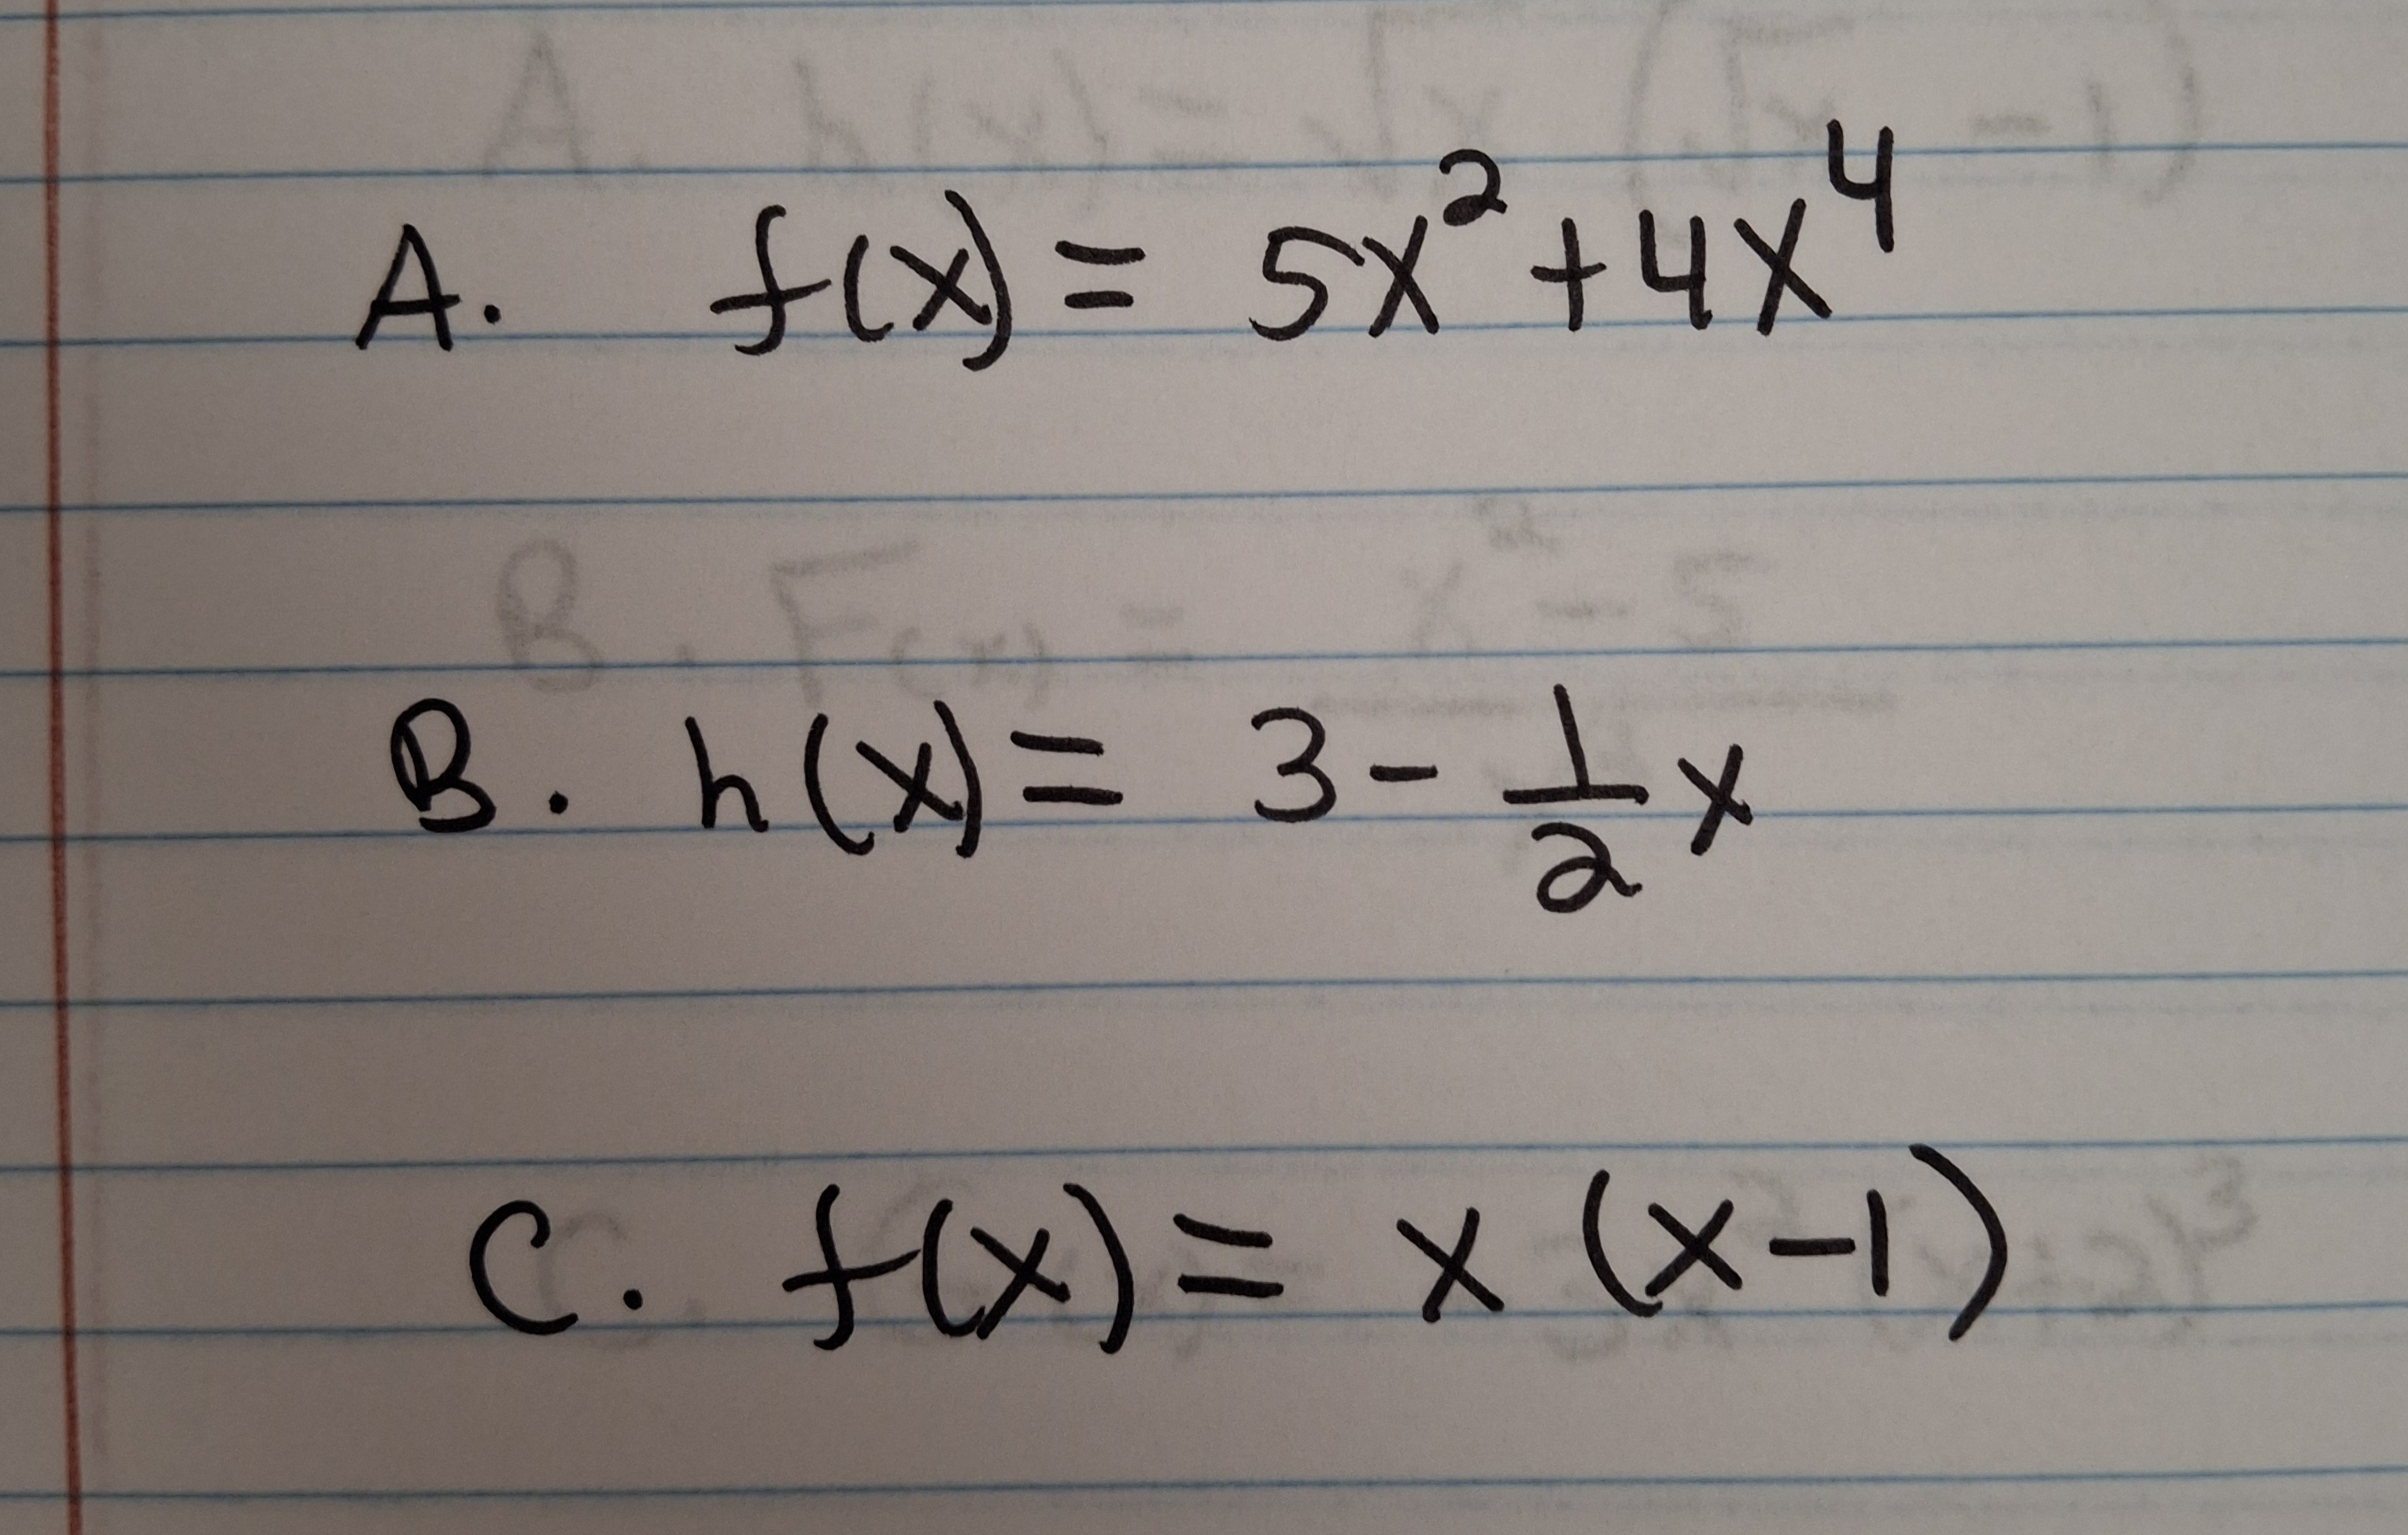 A. f(x) = 5x² + 4x⁴
B. h(x) = 3 - 1/2 x
C. f(x) = x (x-1)